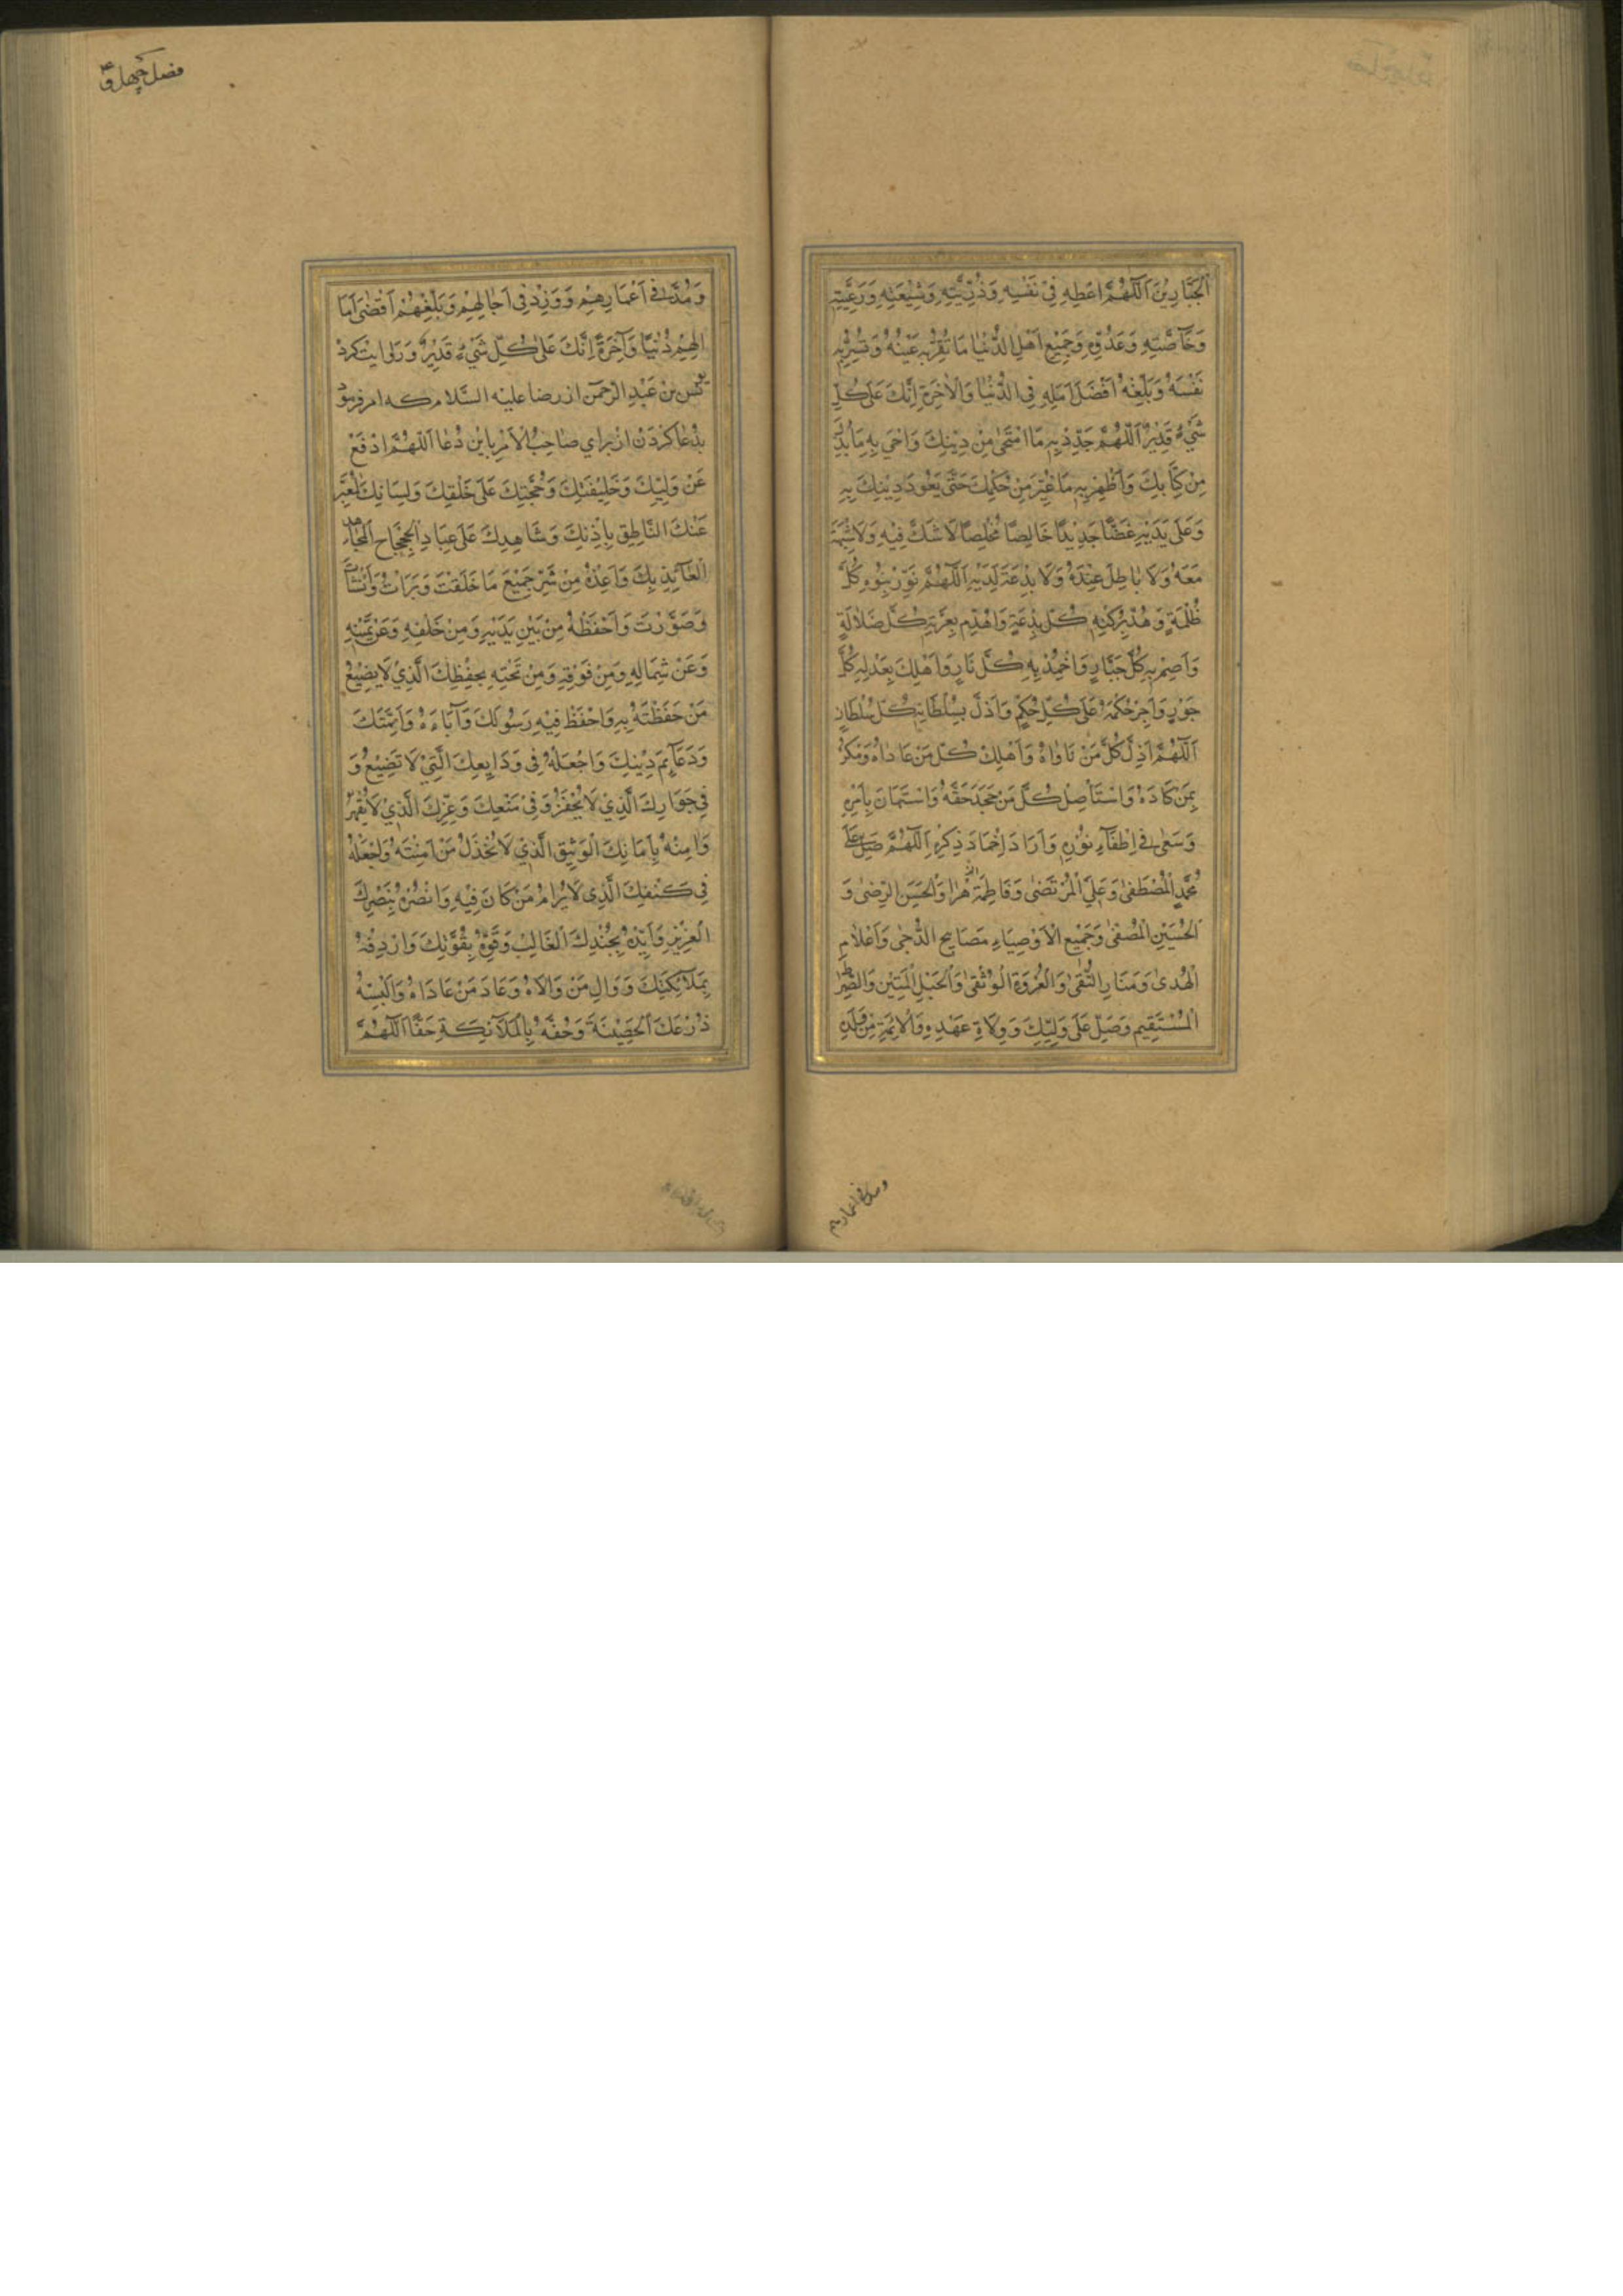 اَلْجَبَّارِيْنَ اَللّٰهُمَّ اَعْطِهِ فِيْ نَفْسِهِ وَذُرِّيَّتِهِ وَشِيْعَتِهِ وَرَعِيَّتِهِ
وَخَاصَّتِهِ وَعَدُوِّهِ وَجَمِيْعِ اَهْلِ الدُّنْيَا مَا تُقِرُّ بِهِ عَيْنَهُ وَتَسُرُّ بِهِ
نَفْسَهُ وَبَلِّغْهُ اَفْضَلَ اَمَلِهِ فِي الدُّنْيَا وَالْاٰخِرَةِ اِنَّكَ عَلٰى كُلِّ
شَيْءٍ قَدِيْرٌ اَللّٰهُمَّ جَدِّدْ بِهِ مَا امْتَحٰى مِنْ دِيْنِكَ وَاَحْيِ بِهِ مَا بُدِّلَ
مِنْ كِتَابِكَ وَاَظْهِرْ بِهِ مَا غُيِّرَ مِنْ حُكْمِكَ حَتّٰى يَعُوْدَ دِيْنُكَ بِهِ
وَعَلٰى يَدَيْهِ غَضًّا جَدِيْدًا خَالِصًا مُخْلَصًا لَا شَكَّ فِيْهِ وَلَا شُبْهَةَ
مَعَهُ وَلَا بَاطِلَ عِنْدَهُ وَلَا بِدْعَةَ لَدَيْهِ اَللّٰهُمَّ نَوِّرْ بِنُوْرِهِ كُلَّ
ظُلْمَةٍ وَهُدَّ بِرُكْنِهِ كُلَّ بِدْعَةٍ وَاهْدِمْ بِعِزَّتِهِ كُلَّ ضَلَالَةٍ
وَاَصِمْ بِهِ كُلَّ جَبَّارٍ وَاَخْمِدْ بِهِ كُلَّ نَارٍ وَاَهْلِكْ بِعَدْلِهِ كُلَّ
جَوْرٍ وَاَجْرِ حُكْمَهُ عَلٰى كُلِّ حُكْمٍ وَاَذِلَّ بِسُلْطَانِهِ كُلَّ سُلْطَانٍ
اَللّٰهُمَّ اَذِلَّ كُلَّ مَنْ نَاوَاهُ وَاَهْلِكْ كُلَّ مَنْ عَادَاهُ وَمَكَرَ
بِمَنْ كَادَهُ وَاسْتَأْصِلْ كُلَّ مَنْ جَحَدَ حَقَّهُ وَاسْتَهَانَ بِاَمْرِهِ
وَسَعٰى فِيْ اِطْفَاءِ نُوْرِهِ وَاَرَادَ اِخْمَادَ ذِكْرِهِ اَللّٰهُمَّ صَلِّ عَلٰى
مُحَمَّدٍ الْمُصْطَفٰى وَعَلِيٍّ الْمُرْتَضٰى وَفَاطِمَةَ الزَّهْرَا وَالْحَسَنِ الرِّضٰى وَ
الْحُسَيْنِ الْمُصَفّٰى وَجَمِيْعِ الْاَوْصِيَاءِ مَصَابِيْحِ الدُّجٰى وَاَعْلَامِ
الْهُدٰى وَمَنَارِ التُّقٰى وَالْعُرْوَةِ الْوُثْقٰى وَالْحَبْلِ الْمَتِيْنِ وَالصِّرَاطِ
الْمُسْتَقِيْمِ وَصَلِّ عَلٰى وَلِيِّكَ وَوُلَاةِ عَهْدِهِ وَالْاَئِمَّةِ مِنْ وُلْدِهِ
ومد فی اعمارهم
فصل چهل و
وَمُدَّ فِيْ اَعْمَارِهِمْ وَوَزِدْ فِيْ اٰجَالِهِمْ وَبَلِّغْهُمْ اَقْصٰى اٰمَا
لِهِمْ دُنْيًا وَاٰخِرَةً اِنَّكَ عَلٰى كُلِّ شَيْءٍ قَدِيْرٌ وَرَوايت كرد
يونس بن عَبْدِ الرَّحْمٰن از رضا علیه السَّلام كه امر فرمود
بدُعا كَرْدَنْ از براي صَاحِبُ الْاَمْر باين دُعَا اَللّٰهُمَّ ادْفَعْ
عَنْ وَلِيِّكَ وَخَلِيْفَتِكَ وَحُجَّتِكَ عَلٰى خَلْقِكَ وَلِسَانِكَ الْمُعَبِّرِ
عَنْكَ النَّاطِقِ بِاِذْنِكَ وَشَاهِدِكَ عَلٰى عِبَادِكَ الْجَحْجَاحِ الْمُجَاهِدِ
الْعَائِذِ بِكَ وَاَعِذْهُ مِنْ شَرِّ جَمِيْعِ مَا خَلَقْتَ وَبَرَاْتَ وَاَنْشَاْتَ
وَصَوَّرْتَ وَاحْفَظْهُ مِنْ بَيْنِ يَدَيْهِ وَمِنْ خَلْفِهِ وَعَنْ يَمِيْنِهِ
وَعَنْ شِمَالِهِ وَمِنْ فَوْقِهِ وَمِنْ تَحْتِهِ بِحِفْظِكَ الَّذِيْ لَا يَضِيْعُ
مَنْ حَفِظْتَهُ بِهِ وَاحْفَظْ فِيْهِ رَسُوْلَكَ وَاٰبَاءَهُ وَاَئِمَّتَكَ
وَدَعَائِمَ دِيْنِكَ وَاجْعَلْهُ فِيْ وَدَايِعِكَ الَّتِيْ لَا تَضِيْعُ وَ
فِيْ جَوَارِكَ الَّذِيْ لَا يُخْفَرُ وَفِيْ مَنْعِكَ وَعِزِّكَ الَّذِيْ لَا يُقْهَرُ
وَاٰمِنْهُ بِاَمَانِكَ الْوَثِيْقِ الَّذِيْ لَا يُخْذَلُ مَنْ اٰمَنْتَهُ وَاجْعَلْهُ
فِيْ كَنَفِكَ الَّذِيْ لَا يُرَامُ مَنْ كَانَ فِيْهِ وَانْصُرْهُ بِنَصْرِكَ
الْعَزِيْزِ وَاَيِّدْهُ بِجُنْدِكَ الْغَالِبِ وَقَوِّهِ بِقُوَّتِكَ وَارْدِفْهُ
بِمَلَائِكَتِكَ وَوَالِ مَنْ وَالَاهُ وَعَادِ مَنْ عَادَاهُ وَاَلْبِسْهُ
دِرْعَكَ الْحَصِيْنَةَ وَحُفَّهُ بِالْمَلَائِكَةِ حَفًّا اَللّٰهُمَّ